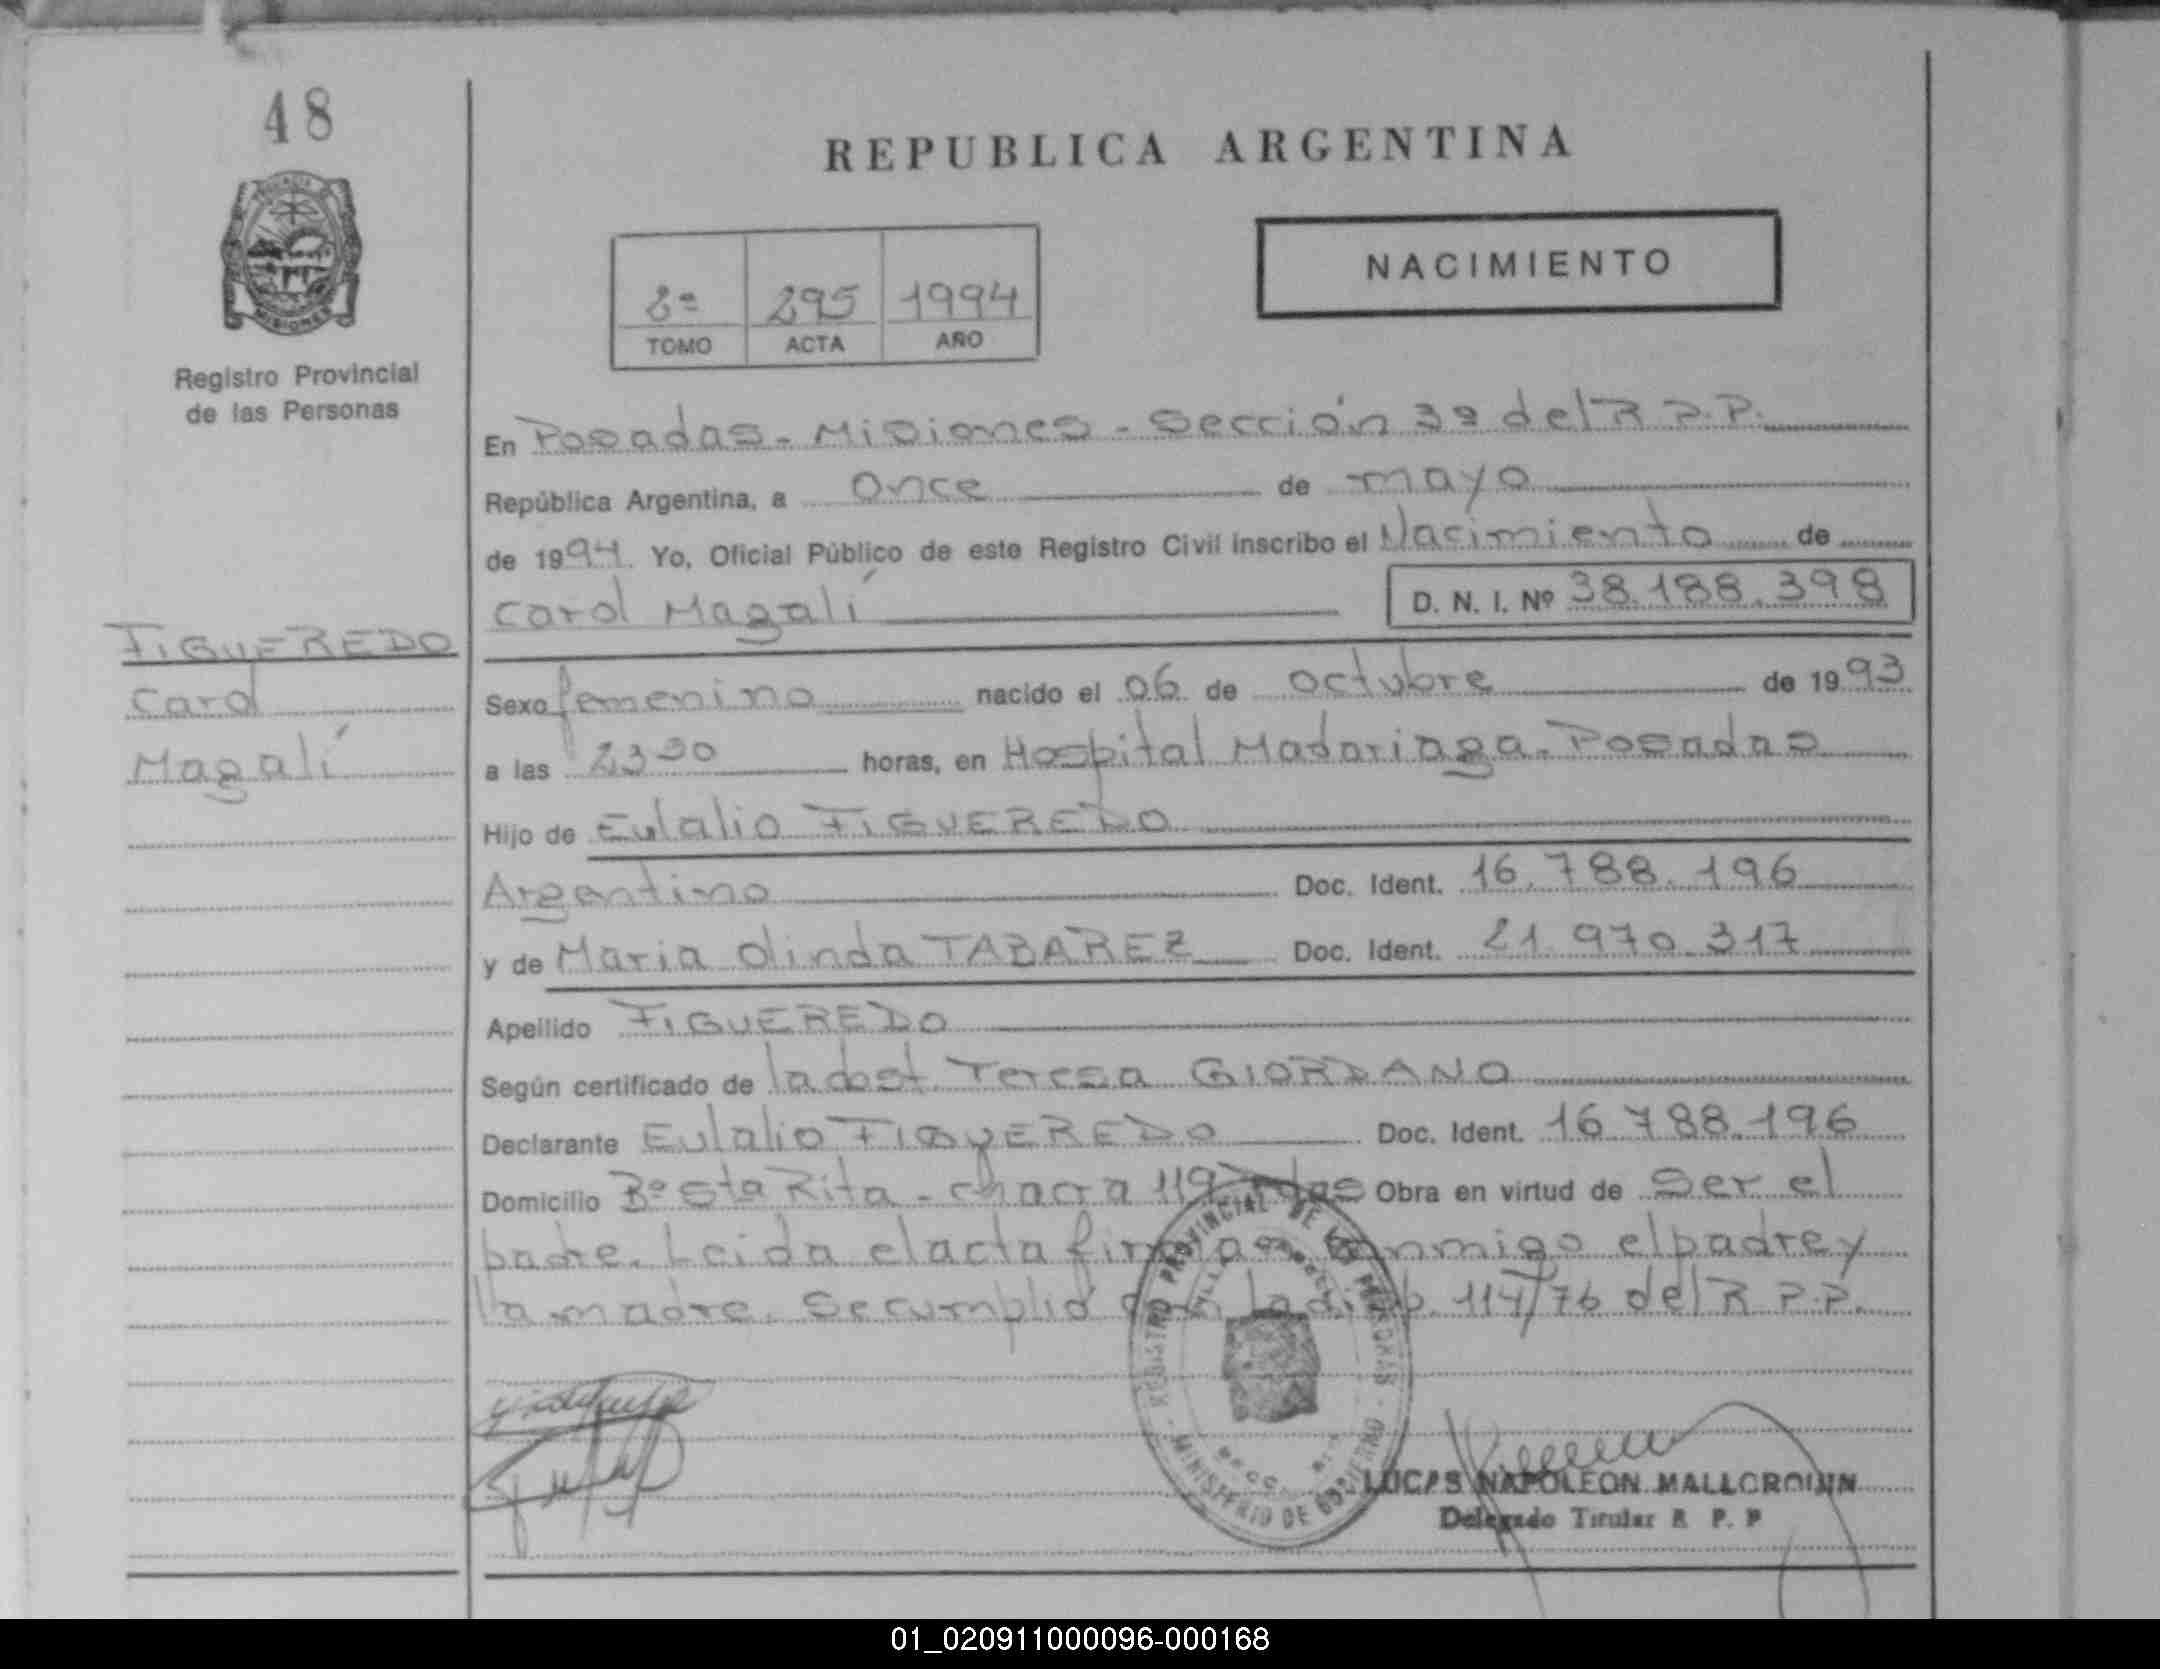 48
REPUBLICA ARGENTINA
MISIONES
Registro Provincial
de las Personas
2º 295 1994
TOMO ACTA AÑO
NACIMIENTO
En Posadas - Misiones - Sección 3ª del R.P.P.
República Argentina, a Once de mayo
de 1994. Yo, Oficial Público de este Registro Civil inscribo el Nacimiento de
Carol Magalí D. N. I. Nº 38.188.398
FIGUEREDO
Carol
Magalí
Sexo femenino nacido el 06 de octubre de 1993
a las 23 30 horas, en Hospital Madariaga. Posadas
Hijo de Eulalio FIGUEREDO
Argentino Doc. Ident. 16.788.196
y de Maria Olinda TABAREZ Doc. Ident. 21.970.317
Apellido FIGUEREDO
Según certificado de la obst. Teresa GIORDANO
Declarante Eulalio FIGUEREDO Doc. Ident. 16.788.196
Domicilio Bº Sta Rita - chacra 119 Obra en virtud de Ser el
padre. Leida el acta firman conmigo el padre y
la madre. Se cumplió con la disp. 114/76 del R.P.P.
REGISTRO PROVINCIAL DE LAS PERSONAS
MINISTERIO DE GOBIERNO
LUCAS NAPOLEON
Delegado Titular R. P. P
01_020911000096-000168